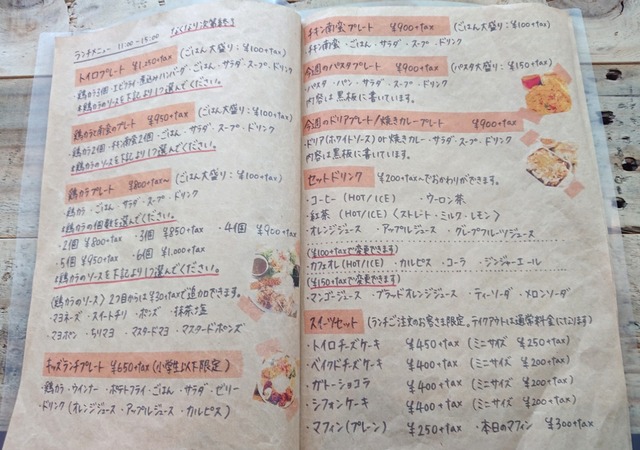 ランチメニュー 11:00~15:00
なくなり次第終了
トイロプレート ¥1,250+tax (ごはん大盛り:¥100+tax)
・鶏カラ3個・エビフライ・煮込みハンバーグ・ごはん・サラダ・スープ・ドリンク
*鶏カラのソースを下記より1つ選んでください。
鶏カラと南蛮のプレート ¥950+tax (ごはん大盛り:¥100+tax)
・鶏カラ2個・チキン南蛮2個・ごはん・サラダ・スープ・ドリンク
*鶏カラのソースを下記より1つ選んでください。
鶏カラプレート ¥800+tax~ (ごはん大盛り:¥100+tax)
・鶏カラ・ごはん・サラダ・スープ・ドリンク
*鶏カラの個数を選んでください。
・2個 ¥800+tax ・3個 ¥850+tax ・4個 ¥900+tax
・5個 ¥950+tax ・6個 ¥1,000+tax
*鶏カラのソースを下記より1つ選んでください。
(鶏カラのソース) 2つ目からは¥30+taxで追加できます。
・マヨネーズ ・スイートチリ ・ポンズ ・抹茶塩
・マヨポン ・チリマヨ ・マスタードマヨ ・マスタードポンズ
キッズランチプレート ¥650+tax (小学生以下限定)
・鶏カラ・ウインナー・ポテトフライ・ごはん・サラダ・ゼリー
・ドリンク (オレンジジュース・アップルジュース・カルピス)
チキン南蛮プレート ¥900+tax (ごはん大盛り:¥100+tax)
・チキン南蛮・ごはん・サラダ・スープ・ドリンク
今週のパスタプレート ¥900+tax (パスタ大盛り:¥150+tax)
・パスタ・パン・サラダ・スープ・ドリンク
内容は黒板に書いています。
今週のドリアプレート/焼きカレープレート ¥900+tax
・ドリア(ホワイトソース)or焼きカレー・サラダ・スープ・ドリンク
内容は黒板に書いています。
セットドリンク ¥200+tax~でおかわりができます。
・コーヒー (HOT/ICE) ・ウーロン茶
・紅茶 (HOT/ICE) (ストレート・ミルク・レモン)
・オレンジジュース ・アップルジュース ・グレープフルーツジュース
(¥100+taxで変更できます)
・カフェオレ(HOT/ICE) ・カルピス ・コーラ ・ジンジャーエール
(¥150+taxで変更できます)
・マンゴージュース ・ブラッドオレンジジュース ・ティーソーダ ・メロンソーダ
スイーツセット (ランチご注文のお客さま限定。テイクアウトは通常料金になります)
・トイロチーズケーキ ¥450+tax (ミニサイズ ¥250+tax)
・ベイクドチーズケーキ ¥400+tax (ミニサイズ ¥200+tax)
・ガトーショコラ ¥400+tax (ミニサイズ ¥200+tax)
・シフォンケーキ ¥400+tax (ミニサイズ ¥200+tax)
・マフィン(プレーン) ¥250+tax ・本日のマフィン ¥300+tax